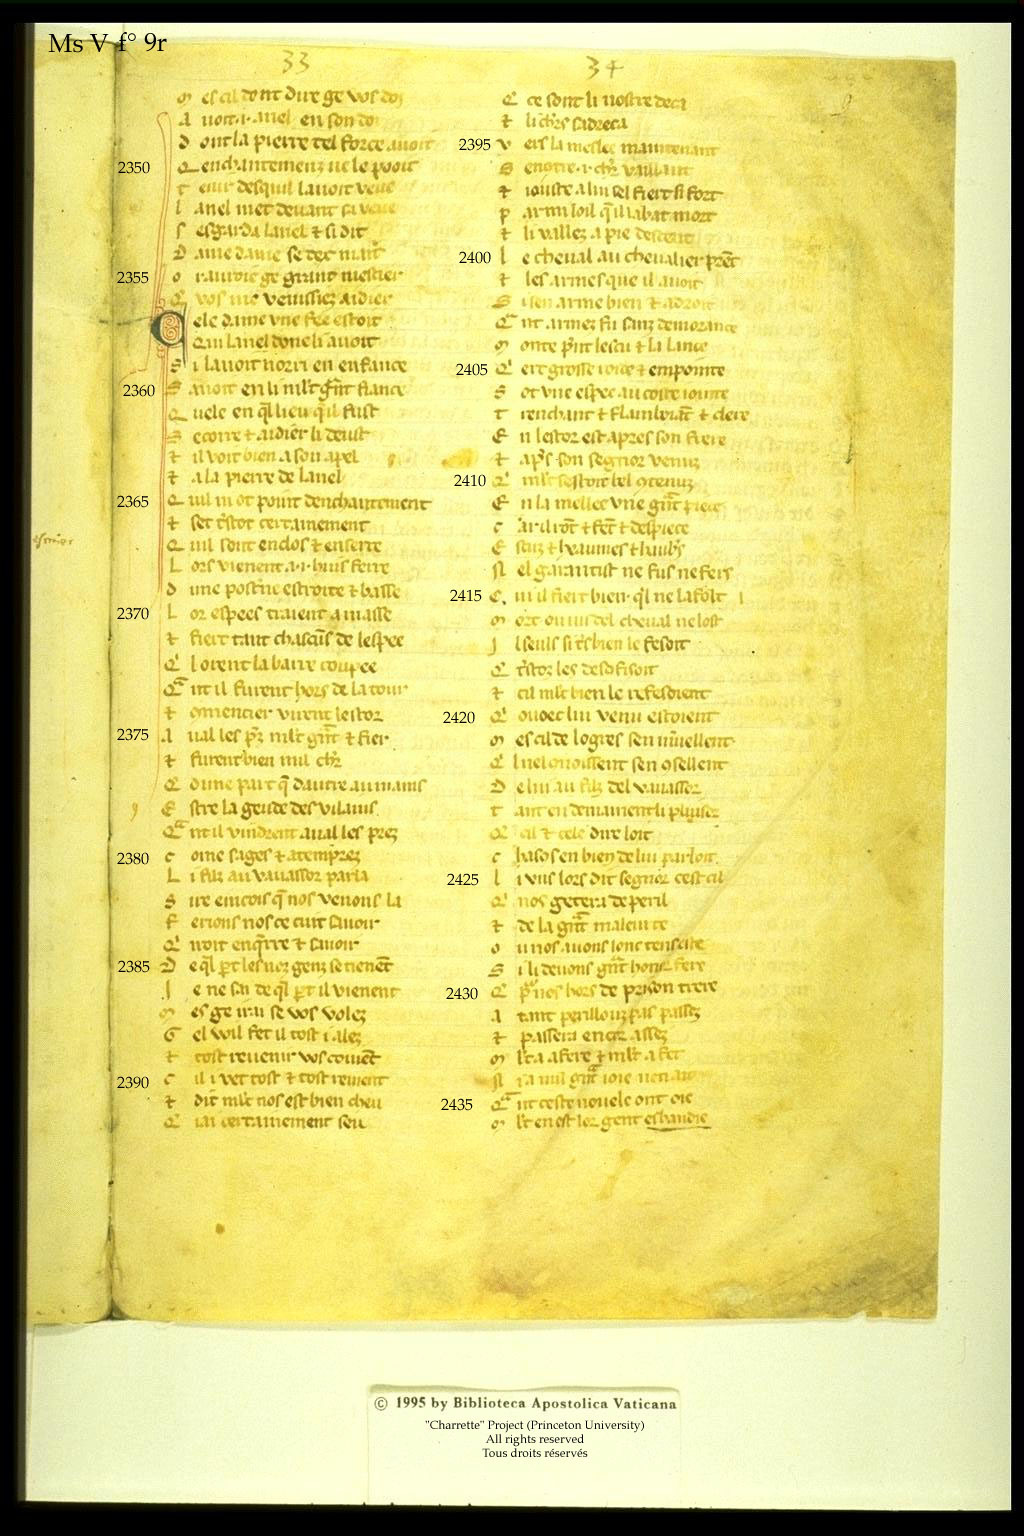 Ms V f° 9r
33
34
M es cil dont dire ge vos doi
A voit .i. anel en son doi
D ont la pierre tel force avoit
2350 Q enchantemenz ne le pooit
T enir desquil lavoit veue
L anel met devant sa veue
S esgarda lanel ⁊ si dit
D ame dame se dex mait
2355 O r auroie ge grant mestier
Q vos me venissiez aidier
C ele dame une fee estoit
Q ui lanel done li avoit
S i lavoit norri en enfance
2360 S avoit en li ml't grant fiance
Q uele en ql lieu qil fust
S ecorre ⁊ aidier li deust
⁊ il voit bien a son apel
⁊ a la pierre de lanel
2365 Q uil ni ot point denchantement
⁊ set tstot certainement
Q uil sont enclos ⁊ enserre
L ors vienent a .i. huis ferre
D une postne estroite ⁊ basse
2370 L or espees traient a masse
⁊ fiert tant chascuns de lespee
Q l orent la barre coupee
Q nt il furent hors de la tour
⁊ omencier virent lestor
2375 A val les prez ml't grant ⁊ fier
⁊ furent bien mil chr
Q dune part q dautre au mains
E stre la geude des vilains
Q nt il vindrent aval les prez
2380 C ome sages ⁊ atemprez
L i filz au vavassor parla
S ire eincois q nos venons la
F erions nos ce cuit savoir
Q i voit enqrre ⁊ savoir
2385 D e ql pt les noz genz se tienent
I e ne sai de ql pt il vienent
M es ge irai se vos volez
G el voil fet il tost i alez
⁊ tost revenir vos covient
2390 C il i vet tost ⁊ tost revient
⁊ dit ml't nos est bien cheu
Q iai certainement seu
Q ce sont li nostre deca
⁊ li chrs sadreca
2395 V ers la meslee maintenant
S encotre .i. chr vaillant
⁊ iouste a lui sel fiert si fort
P armi loil q il labat mort
⁊ li vallez a pie descent
2400 L e cheval au chevalier prent
⁊ les armes que il avoit
S i sen arme bien ⁊ adroit
Q nt armez fu sanz demorance
M onte prent lescu ⁊ la lance
2405 Q ert grosse roide ⁊ empointe
S ot une espee au coste iointe
T renchant ⁊ flambeiant ⁊ clere
E n lestor est apres son frere
⁊ aps son segnor venuz
2410 Q ml't sestoit bel otenuz
E n la mellee une grant piece
C ar il ront ⁊ fent ⁊ despiece
E scuz ⁊ heaumes ⁊ haubs
N el garantist ne fus ne fers
2415 C ui il fiert bien ql ne lafolt
M ort ou vis del cheval ne lost
I l seuls si ts bien le fesoit
Q tstoz les descofisoit
⁊ cil ml't bien le refesoient
2420 Q ovoec lui venu estoient
M es cil de logres sen mveillent
Q l nel conoissent sen osellent
D e lui au filz del vavassor
T ant en demanent li plusor
Q cil ⁊ cele dire loit
C hascs en bien de lui parloit
2425 L i uns lors dit segnor cest cil
Q nos getera de peril
⁊ de la grant maleurte
O u nos avons lonc tens este
S i li devons grant honur fere
2430 Q p nos hors de prison trere
A tant perillouz pas passez
⁊ passera encor assez
M l't a a fere ⁊ ml't a fet
N i a nul grant ioie nen ait
2435 Q nt ceste novele ont oie
M l't en est lor gent esbaudie
© 1995 by Biblioteca Apostolica Vaticana
"Charrette" Project (Princeton University)
All rights reserved
Tous droits réservés